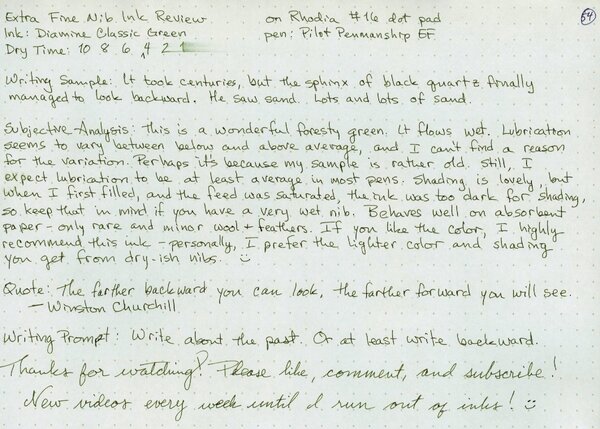 Extra Fine Nib Ink Review on Rhodia #16 dot pad 54
Ink: Diamine Classic Green pen: Pilot Penmanship EF
Dry Time: 10 8 6 4 2 1
Writing Sample: It took centuries, but the sphinx of black quartz finally
managed to look backward. He saw sand. Lots and lots of sand.
Subjective Analysis: This is a wonderful foresty green. It flows wet. Lubrication
seems to vary between below and above average, and I can't find a reason
for the variation. Perhaps it's because my sample is rather old. Still, I
expect lubrication to be at least average in most pens. Shading is lovely, but
when I first filled, and the feed was saturated, the ink was too dark for shading,
so keep that in mind if you have a very wet nib. Behaves well on absorbent
paper - only rare and minor wool + feathers. If you like the color, I highly
recommend this ink - personally, I prefer the lighter color and shading
you get from dry-ish nibs. :)
Quote: The farther backward you can look, the farther forward you will see.
- Winston Churchill
Writing Prompt: Write about the past. Or at least write backward.
Thanks for watching! Please like, comment, and subscribe!
New videos every week until I run out of inks! :)